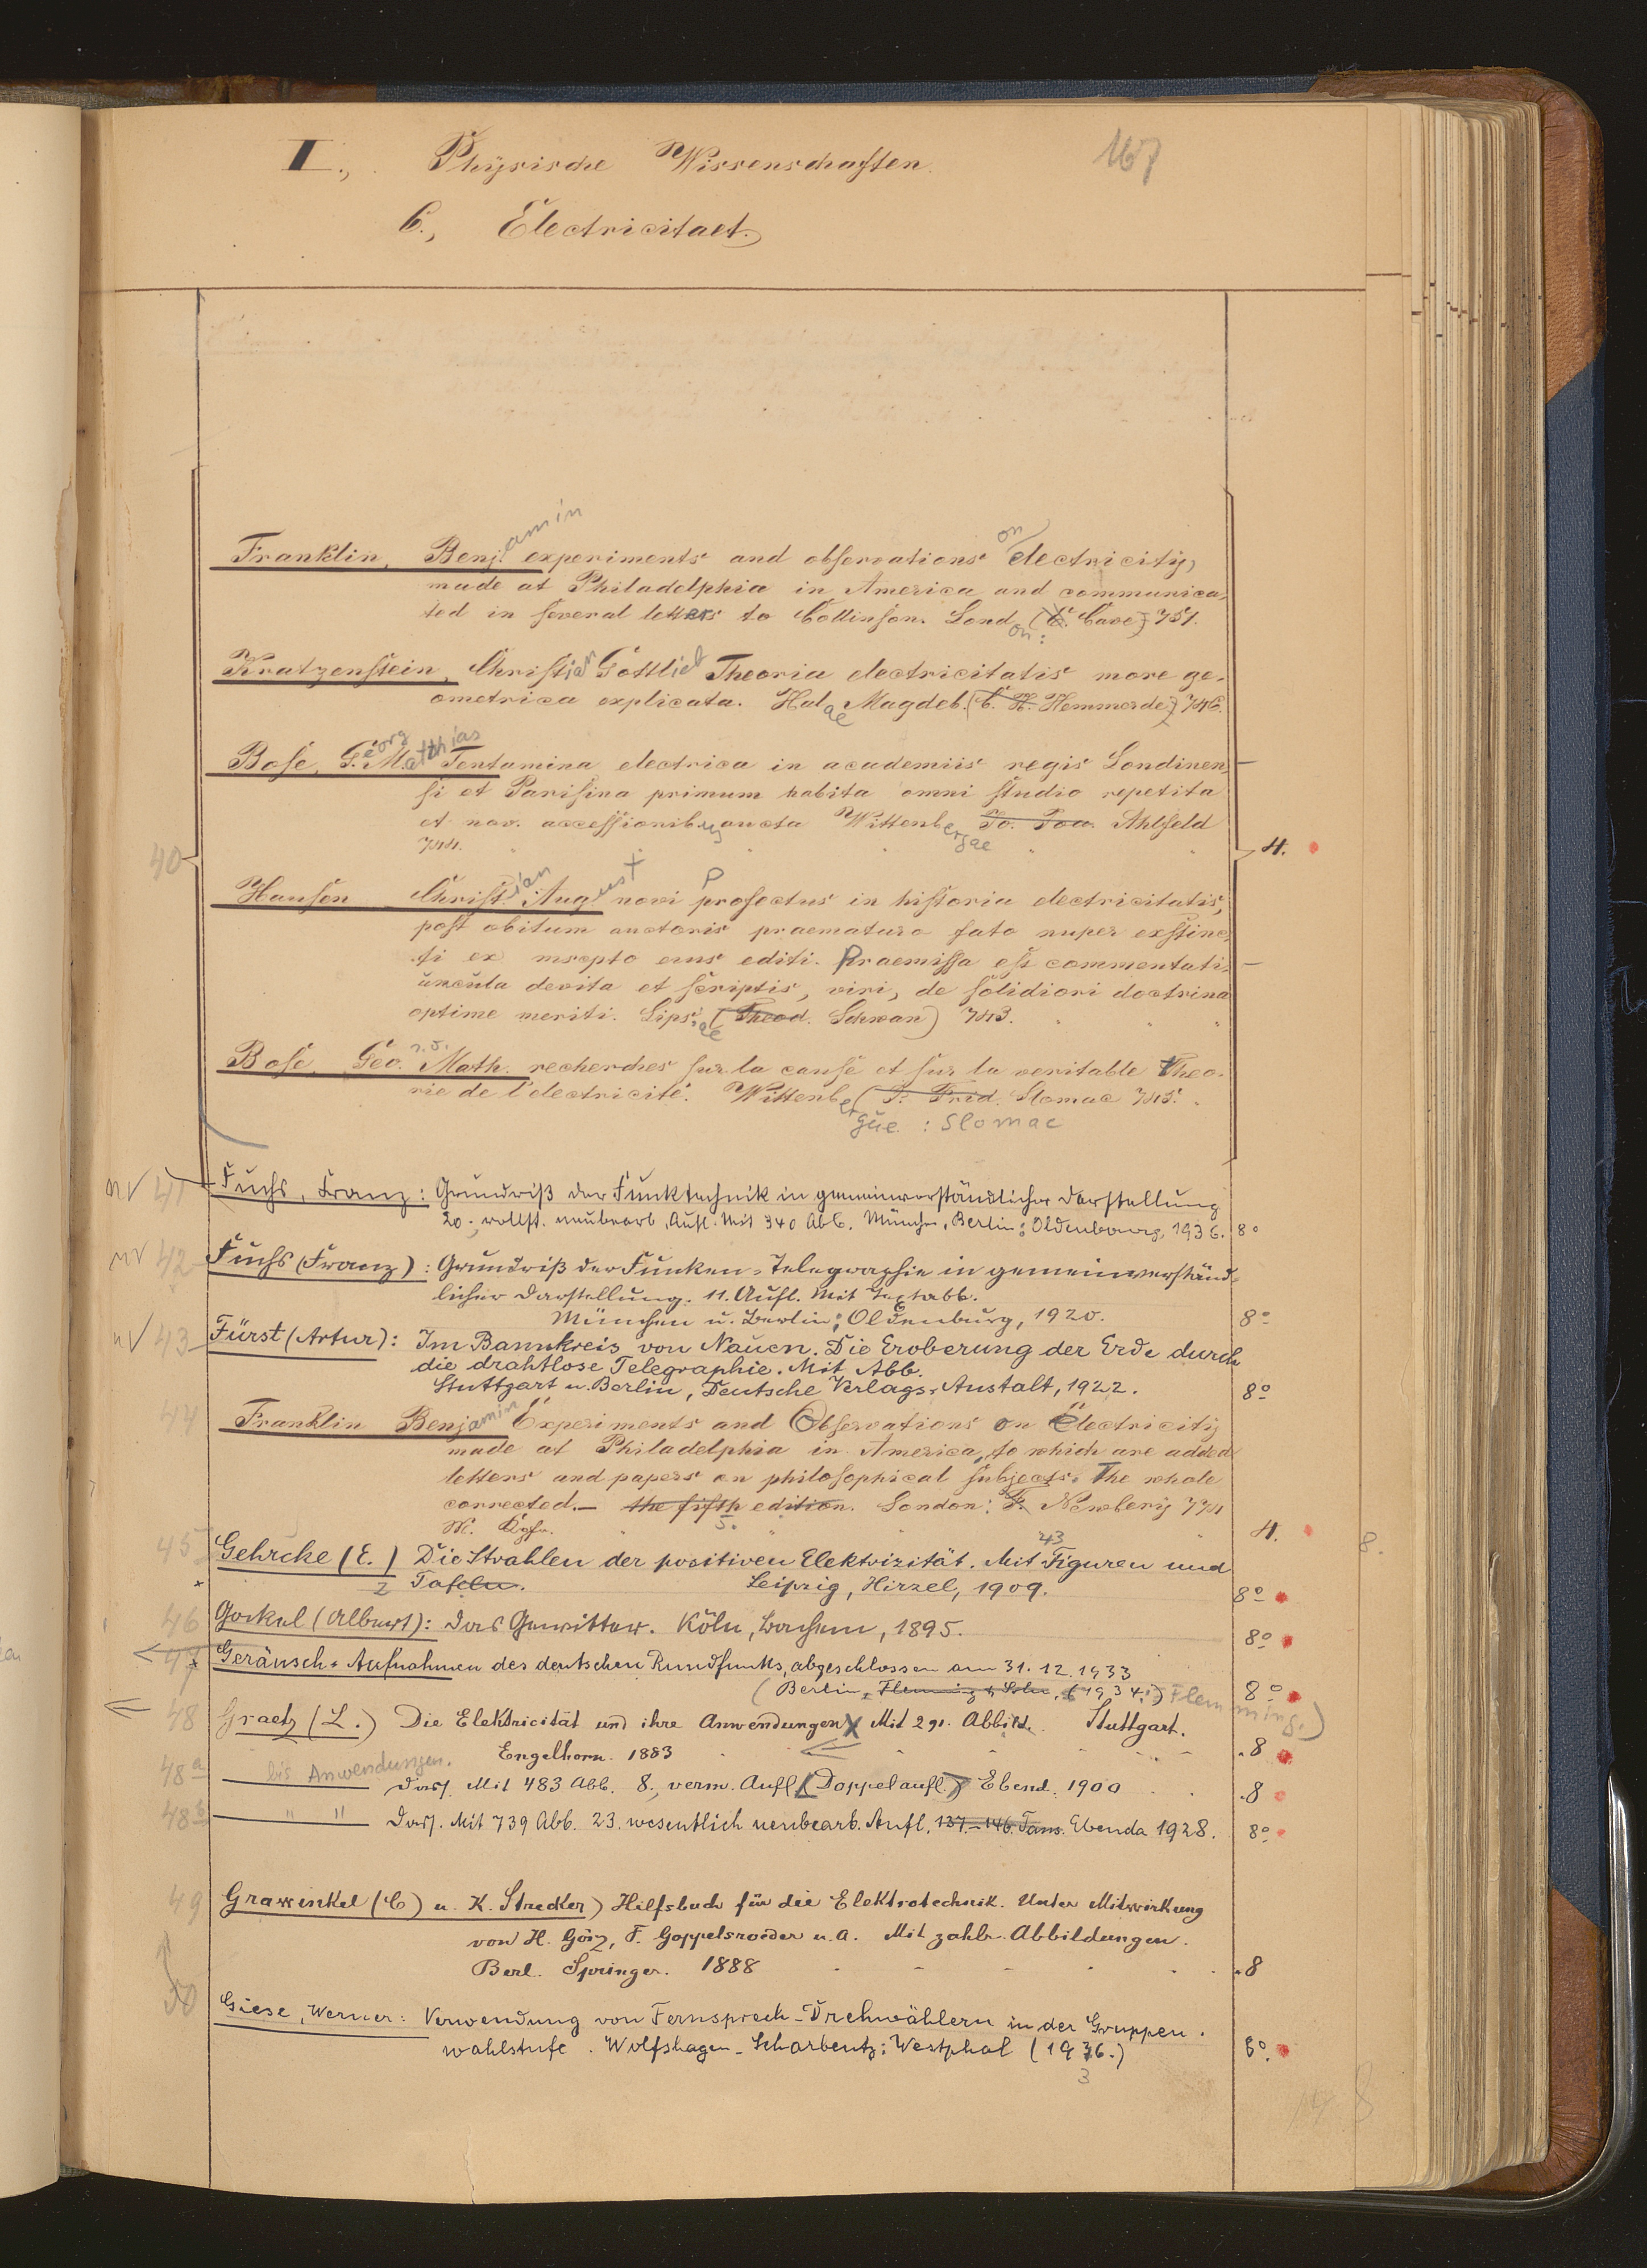 I., Physische Wissenschaften. 167
C., Electricitaet.
Franklin, Benjamin experiments and observations on electricity,
made at Philadelphia in America and communica-
ted in several letters to Collinson. London: (E. Cave) 751.
Kratzenstein, Christian Gottlieb Theoria electricitatis more ge-
ometrica explicata. Halae Magdeb. (C. H. Hemmerde) 746.
Bose, Georg Matthias Tentamina electrica in academiis regis Londinen-
si et Parisina primum habita omni studio repetita
et nov. accessionibus aucta Wittenbergae Jo. Joa. Ahlfeld
744.
40 4.
Hausen Christian August novi profectus in historia electricitatis,
post obitum auctoris praematuro fato nuper exstinc-
ti ex mscpto eius editi. Praemissa est commentati-
uncula de vita et scriptis, viri, de solidiori doctrina
optime meriti. Lipsiae (Theod. Schwan) 743.
Bose Geo. Math. recherches sur la cause et sur la veritable Theo-
rie de l'electricité. Wittenber (J. Frid. Slomac 745.
gue : Slomac
41 Fuchs, Franz: Grundriß der Funktechnik in gemeinverständlicher Darstellung
20., vollst. neubearb. Aufl. Mit 340 Abb. München, Berlin: Oldenbourg, 1936. 8°
42 Fuchs (Franz): Grundriß der Funken-Telegraphie in gemeinverständ-
licher Darstellung. 11. Aufl. Mit Textabb.
München u. Berlin: Oldenburg, 1920. 8°
43 Fürst (Artur): Im Bannkreis von Nauen. Die Eroberung der Erde durch
die drahtlose Telegraphie. Mit Abb.
Stuttgart u. Berlin, Deutsche Verlags-Anstalt, 1922. 8°
44 Franklin Benjamin Experiments and Observations on Electricity
made at Philadelphia in America, to which are added
letters and papers on philosophical subjects. The whole
corrected. — the fifth edition. London: F. Newbery 774
5.
M. Kpfn. 4. 8.
45 Gehrcke (E.) Die Strahlen der positiven Elektrizität. Mit 43 Figuren und
2 Tafeln. Leipzig, Hirzel, 1909. 8°
46 Gockel (Albert): Das Gewitter. Köln, Bachem, 1895. 8°
47 Geräusch-Aufnahmen des deutschen Rundfunks, abgeschlossen am 31.12.1933
(Berlin, Flemming & Sohn, (1934:) Flemming.) 8°
48 Graetz (L.) Die Elektricität und ihre Anwendungen Mit 291. Abbild. Stuttgart.
Engelhorn. 1883 8
48a bis Anwendungen. Dass. Mit 483 Abb. 8., verm. Aufl. (Doppelaufl.) Ebend. 1900 8
48b " " Dass. Mit 739 Abb. 23. wesentlich neubearb. Aufl. 137.-146. Taus. Ebenda 1928. 8°
49 Grawinkel (C) u. K. Strecker) Hilfsbuch für die Elektrotechnik. Unter Mitwirkung
von H. Görz, F. Goppelsroeder u. a. Mit zahlr. Abbildungen.
Berl. Springer. 1888 8
50 Giese, Werner: Verwendung von Fernsprech-Drehwählern in der Gruppen-
wahlstufe. Wolfshagen-Scharbeutz: Westphal (1936.) 8°
3